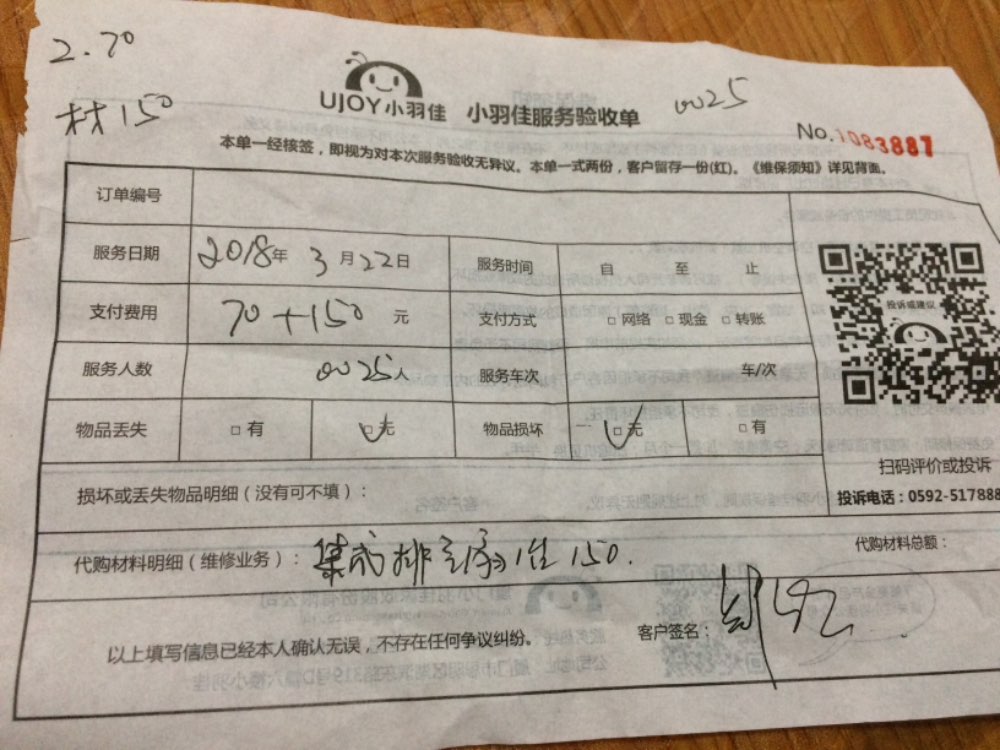 2.70
材150
UJOY小羽佳 小羽佳服务验收单 0025
No.1083887
本单一经核签，即视为对本次服务验收无异议。本单一式两份，客户留存一份(红)。《维保须知》详见背面。
订单编号
服务日期 2018年 3月22日 服务时间 自 至 止
支付费用 70+150 元 支付方式 □网络 □现金 □转账
服务人数 0025人 服务车次 车/次
物品丢失 □有 □无 物品损坏 □无 □有
投诉或建议
扫码评价或投诉
投诉电话：0592-517888
损坏或丢失物品明细（没有可不填）：
代购材料明细（维修业务）：集成排 150.
代购材料总额：
以上填写信息已经本人确认无误，不存在任何争议纠纷。 客户签名：